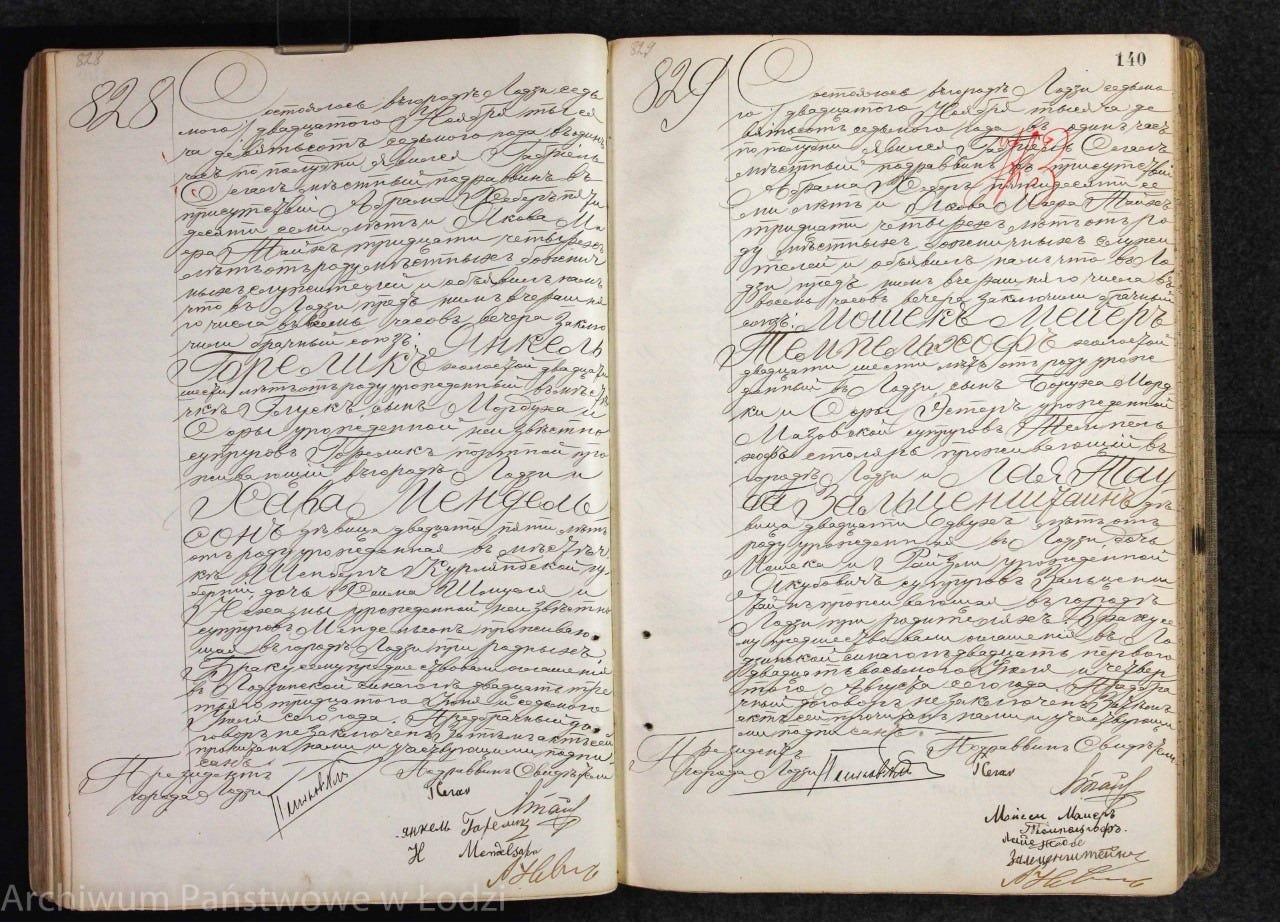 828
828
Состоялось въ городѣ Лодзи седь
мого / двадцатого Ноября тысѧ
ча девятьсотъ седьмого года въ одинъ
часъ по полудни явился Габріель
Сегалъ мѣстный подраввинъ въ
присутствіи Абрама Хеберъ пяти
десяти семи лѣтъ и Якова Ма
ера Тайхъ тридцати четырехъ
лѣтъ отъ роду мѣстныхъ божнич
ныхъ служителей и объявилъ намъ
что въ Лодзи предъ нимъ вчерашня
го числа въ восемь часовъ вечера заклю
чили брачный союзъ:
Горѣликъ холостой двадцати
шести лѣтъ отъ роду урожденный въ мѣсте
чкѣ Глускъ, сынъ Мордуха и
Соры урожденной неизвѣстно
супруговъ Горѣликъ портной про
живающій въ городѣ Лодзи и
Хава Мендель
сонъ дѣвица двадцати пяти лѣтъ
отъ роду урожденная въ мѣстеч
кѣ Шенбергъ Курляндской гу
берніи, дочь Хаима Шмуеля и
урожденной неизвѣстно
супруговъ Мендельсонъ проживаю
щая въ городѣ Лодзи при родныхъ
Браку сему предшествовали оглашенія
въ Лодзинской синагогѣ двадцать тре
тьяго тридцатого Іюня и седьмого
Іюля сего года. Предбрачный до
говоръ не заключенъ. Затѣмъ актъ сей
прочитанъ нами и участвующими подпи
санъ.
Президентъ
города Лодзи
Подраввинъ Свидѣтели
Янкель Горелик
H Mendelsohn
829
829
140
Состоялось въ городѣ Лодзи седьмо
го / двадцатого Ноября тысяча де
вятьсотъ седьмого года въ одинъ часъ
по полудни явился Габріель Сегалъ
мѣстный подраввинъ въ присутствіи
Абрама Хеберъ пятидесяти се
ми лѣтъ и Якова Маера Тайхъ
тридцати четырехъ лѣтъ отъ ро
ду мѣстныхъ божничныхъ служи
телей и объявилъ намъ что въ Ло
дзи предъ нимъ вчерашняго числа въ
восемь часовъ вечера заключили брачный
союзъ: Мошекъ Мейеръ
Темпельхофъ холостой
двадцати шести лѣтъ отъ роду урож
денный въ Лодзи сынъ Боруха Морд
ки и Соры Эстеръ урожденной
Мазовской супруговъ Темпель
хофъ столяръ проживающій въ
городѣ Лодзи и Лая Тау
ба Зальценштайнъ дѣ
вица двадцати двухъ лѣтъ отъ
роду урожденная въ Лодзи дочь
Мошека и Райзли урожденной
Якубовичъ супруговъ Зальценш
тайнъ проживающая въ городѣ
Лодзи при родителяхъ. Браку се
му предшествовали оглашенія въ Ло
дзинской синагогѣ двадцать первого
двадцать восьмого Іюля и четвер
того Августа сего года. Предбра
чный договоръ не заключенъ. Затѣмъ
актъ сей прочитанъ нами и участвующи
ми подписанъ.
Президентъ
города Лодзи
Подраввинъ Свидѣтели
Мойсей Маеръ
Темпельгофъ.
Зальценштейнъ
Archiwum Państwowe w Łodzi